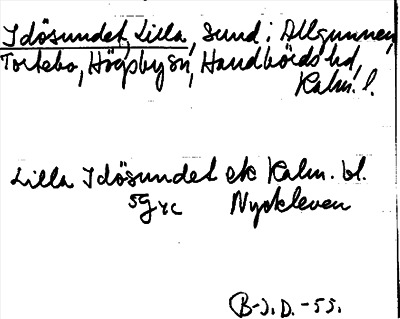 Idösundet, Lilla, sund i Allgunnen,
Tortebo, Högsby sn, Handbörds hd,
Kalm. l.
Lilla Idösundet ek Kalm. bl.
5g yc Nyckleven
B-J. D. -55.